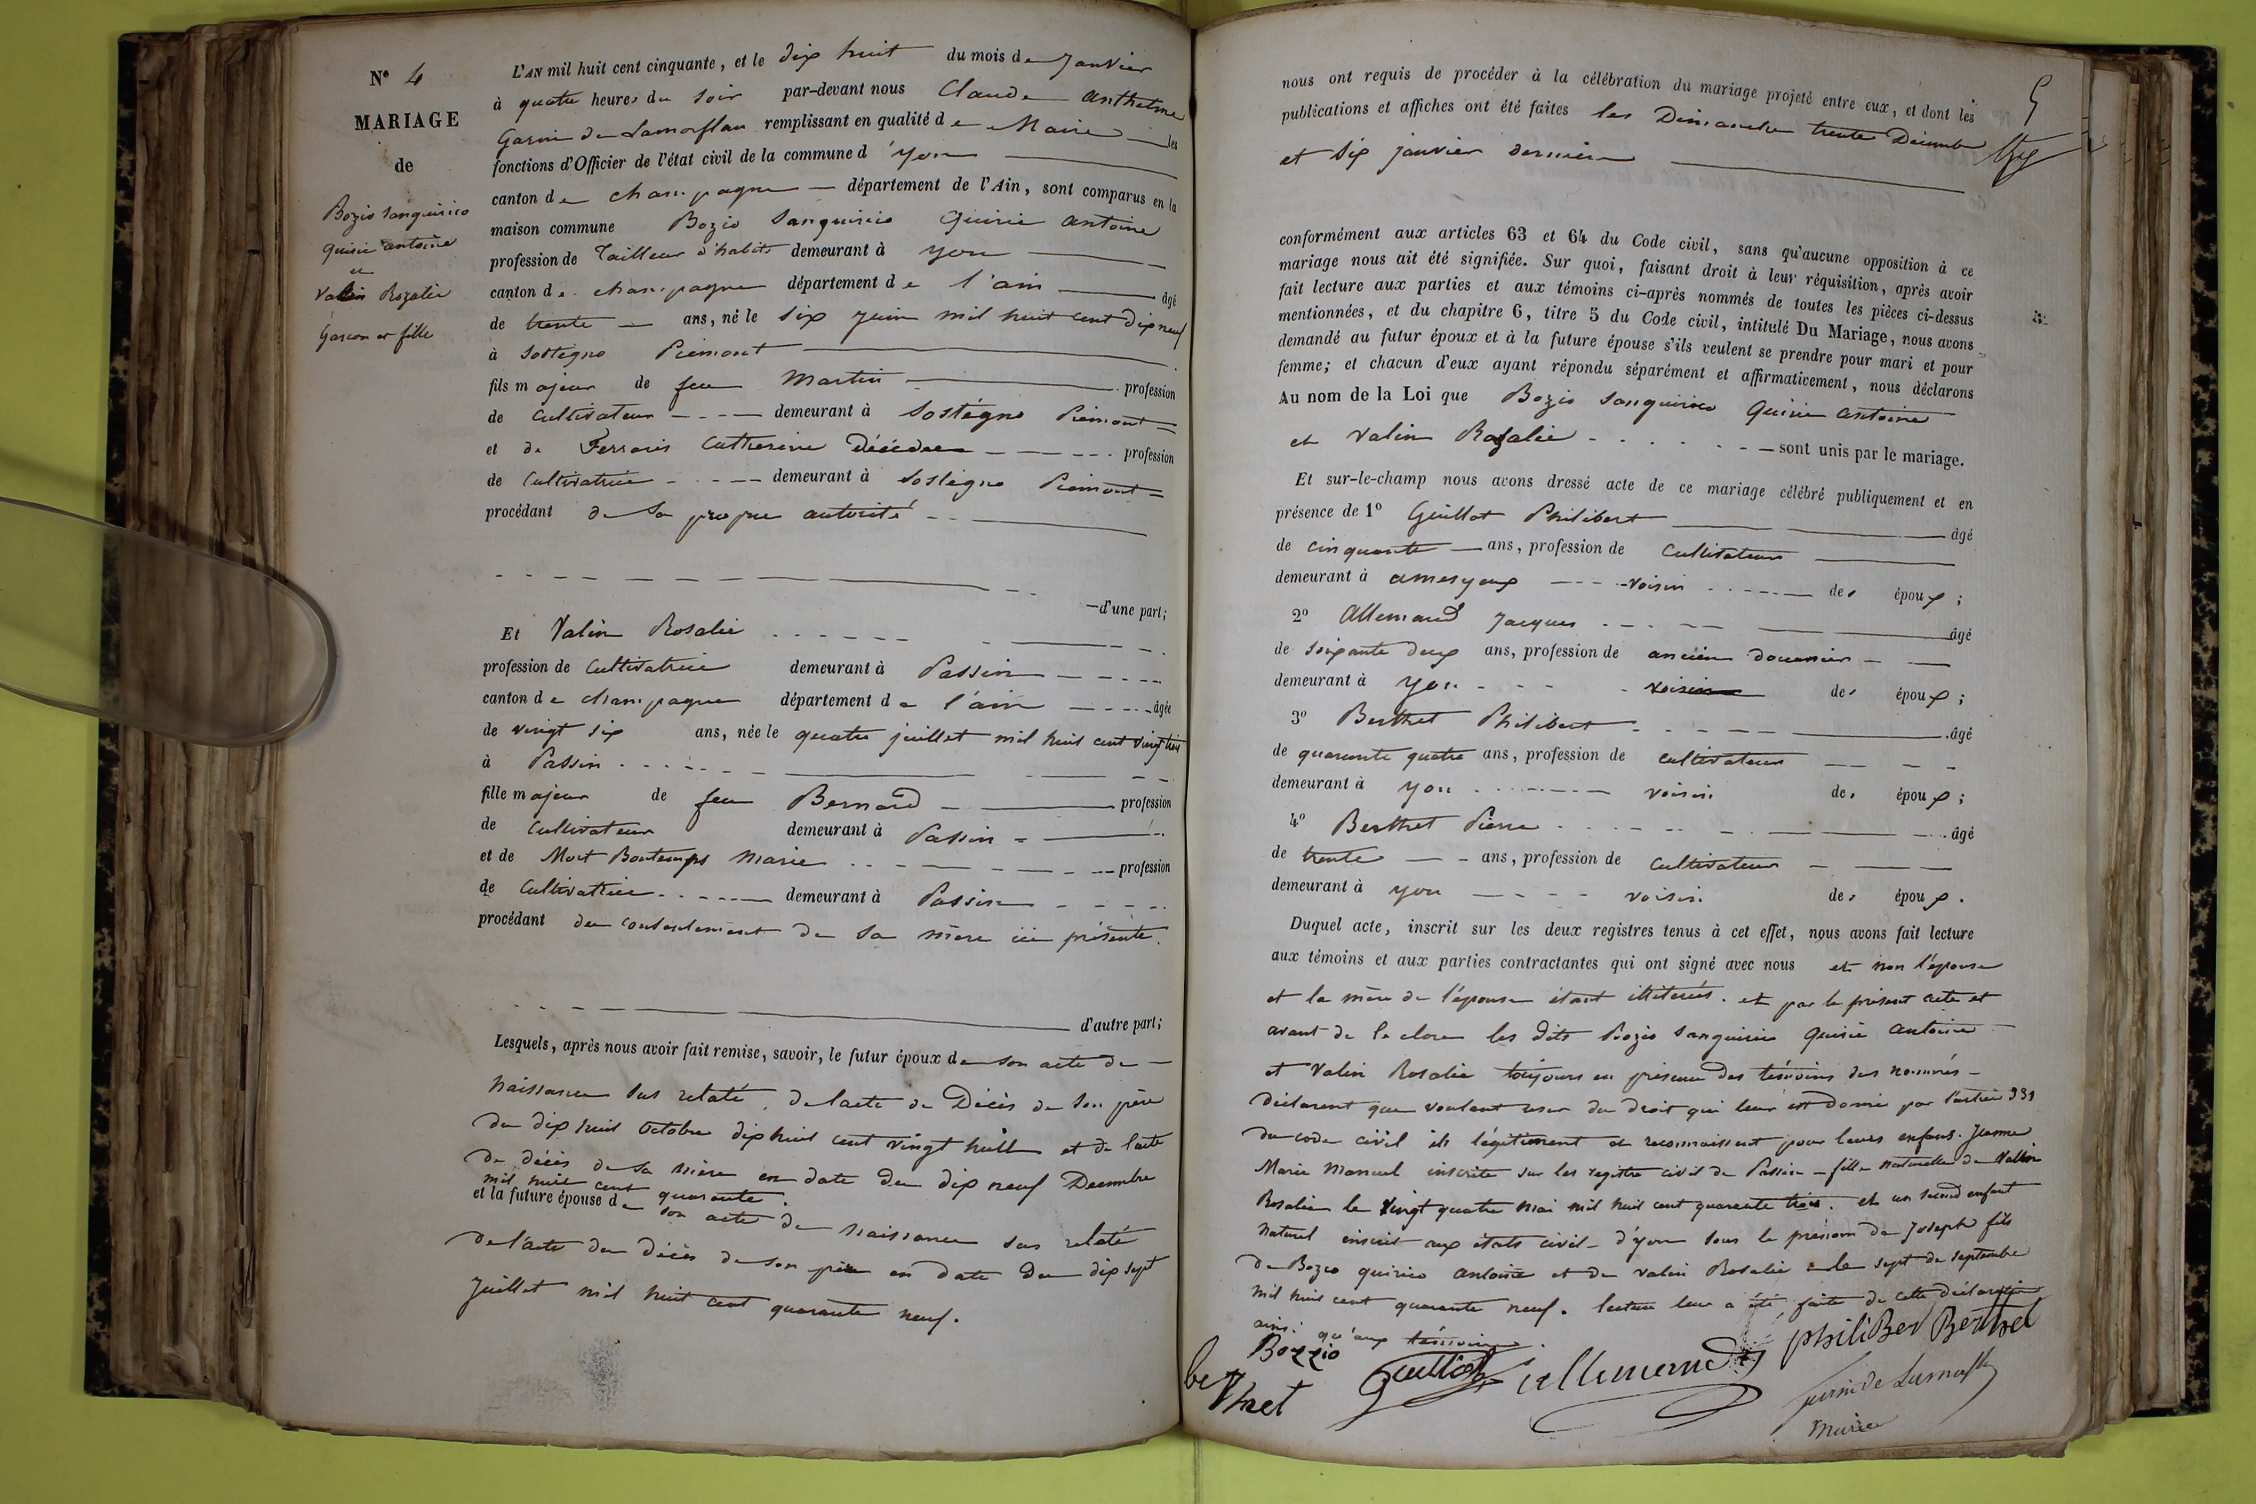 N° 4
MARIAGE
de
Bozio Sanquirico
Quirie antoine
et
Valin Rozalie
Garcon et fille
L'AN mil huit cent cinquante, et le dix huit du mois de Janvier
à quatre heures du Soir par-devant nous Claude anthelme
Garin de Lamorflan remplissant en qualité de Maire les
fonctions d'Officier de l'état civil de la commune d'yon
canton de champagne département de l'Ain, sont comparus en la
maison commune Bozio Sanquirico Quirie antoine
profession de Tailleur d'habits demeurant à yon
canton de champagne département de l'ain âgé
de trente ans, né le Six Juin mil huit cent dix neuf
à Sostegno Piémont
fils majeur de feu Martin profession
de Cultivateur demeurant à Sostégno Piémont
et de Ferraris Catherine Décédée profession
de Cultivatrice demeurant à Sostégno Piémont
procédant de Sa propre autorité
d'une part;
Et Valin Rosalie
profession de Cultivatrice demeurant à Passin
canton de champagne département de l'ain âgée
de vingt six ans, née le quatre juillet mil huit cent vingt trois
à Passin
fille majeur de feu Bernard profession
de Cultivateur demeurant à Passin
et de Mort Bontemps Marie profession
de Cultivatrice demeurant à Passin
procédant du consentement de Sa mère ici présente.
d'autre part;
Lesquels, après nous avoir fait remise, savoir, le futur époux de son acte de
naissance sus relaté, de l'acte de Décès de Son père
du dix huit Octobre dix huit cent vingt huit et de l'acte
de décès de Sa mère en date du dix neuf Decembre
mil huit cent quarante.
et la future épouse de son acte de naissance sus relaté
de l'acte du décès de son père en date du dix sept
Juillet mil huit cent quarante neuf.
5
nous ont requis de procéder à la célébration du mariage projeté entre eux, et dont les
publications et affiches ont été faites les Dimanche trente Décembre
et Six janvier dernier
conformément aux articles 63 et 64 du Code civil, sans qu'aucune opposition à ce
mariage nous ait été signifiée. Sur quoi, faisant droit à leur réquisition, après avoir
fait lecture aux parties et aux témoins ci-après nommés de toutes les pièces ci-dessus
mentionnées, et du chapitre 6, titre 5 du Code civil, intitulé Du Mariage, nous avons
demandé au futur époux et à la future épouse s'ils veulent se prendre pour mari et pour
femme; et chacun d'eux ayant répondu séparément et affirmativement, nous déclarons
Au nom de la Loi que Bozio Sanquirico Quirie Antoine
et Valin Rozalie sont unis par le mariage.
Et sur-le-champ nous avons dressé acte de ce mariage célébré publiquement et en
présence de 1° Guillot Philibert âgé
de cinquante ans, profession de Cultivateur
demeurant à ameyzeux voisin des époux;
2° Allemand Jacques âgé
de Soixante deux ans, profession de ancien douanier
demeurant à yon voisin des époux;
3° Berthet Philibert âgé
de quarante quatre ans, profession de cultivateur
demeurant à yon voisin des époux;
4° Berthet Pierre âgé
de trente ans, profession de Cultivateur
demeurant à yon voisin des époux.
Duquel acte, inscrit sur les deux registres tenus à cet effet, nous avons fait lecture
aux témoins et aux parties contractantes qui ont signé avec nous et non l'épouse
et la mère de l'épouse étant illiterées. et par le présent acte et
avant de le clore les dits Bozio Sanquirico Quirie Antoine
et Valin Rosalie toujours en présence des témoins sus nommés
déclarent que voulant user du droit qui leur est donné par l'article 331
du code civil ils légitiment et reconnaissent pour leurs enfans. Jeanne
Marie Manuel inscrite sur les registre civil de Passin fille naturelle de Vallin
Rosalie le vingt quatre Mai mil huit cent quarante trois. et un second enfant
Naturel inscrit aux états civil d'yon sous le prénom de Joseph fils
de Bozio quirico Antoine et de Valin Rosalie le sept de septembre
mil huit cent quarante neuf. lecture leur a été faite de cette déclaration
ainsi qu'aux témoins.
Bozzio Guillot allemand philiBer Berthet
berthet
garin de Lamorfla
Maire